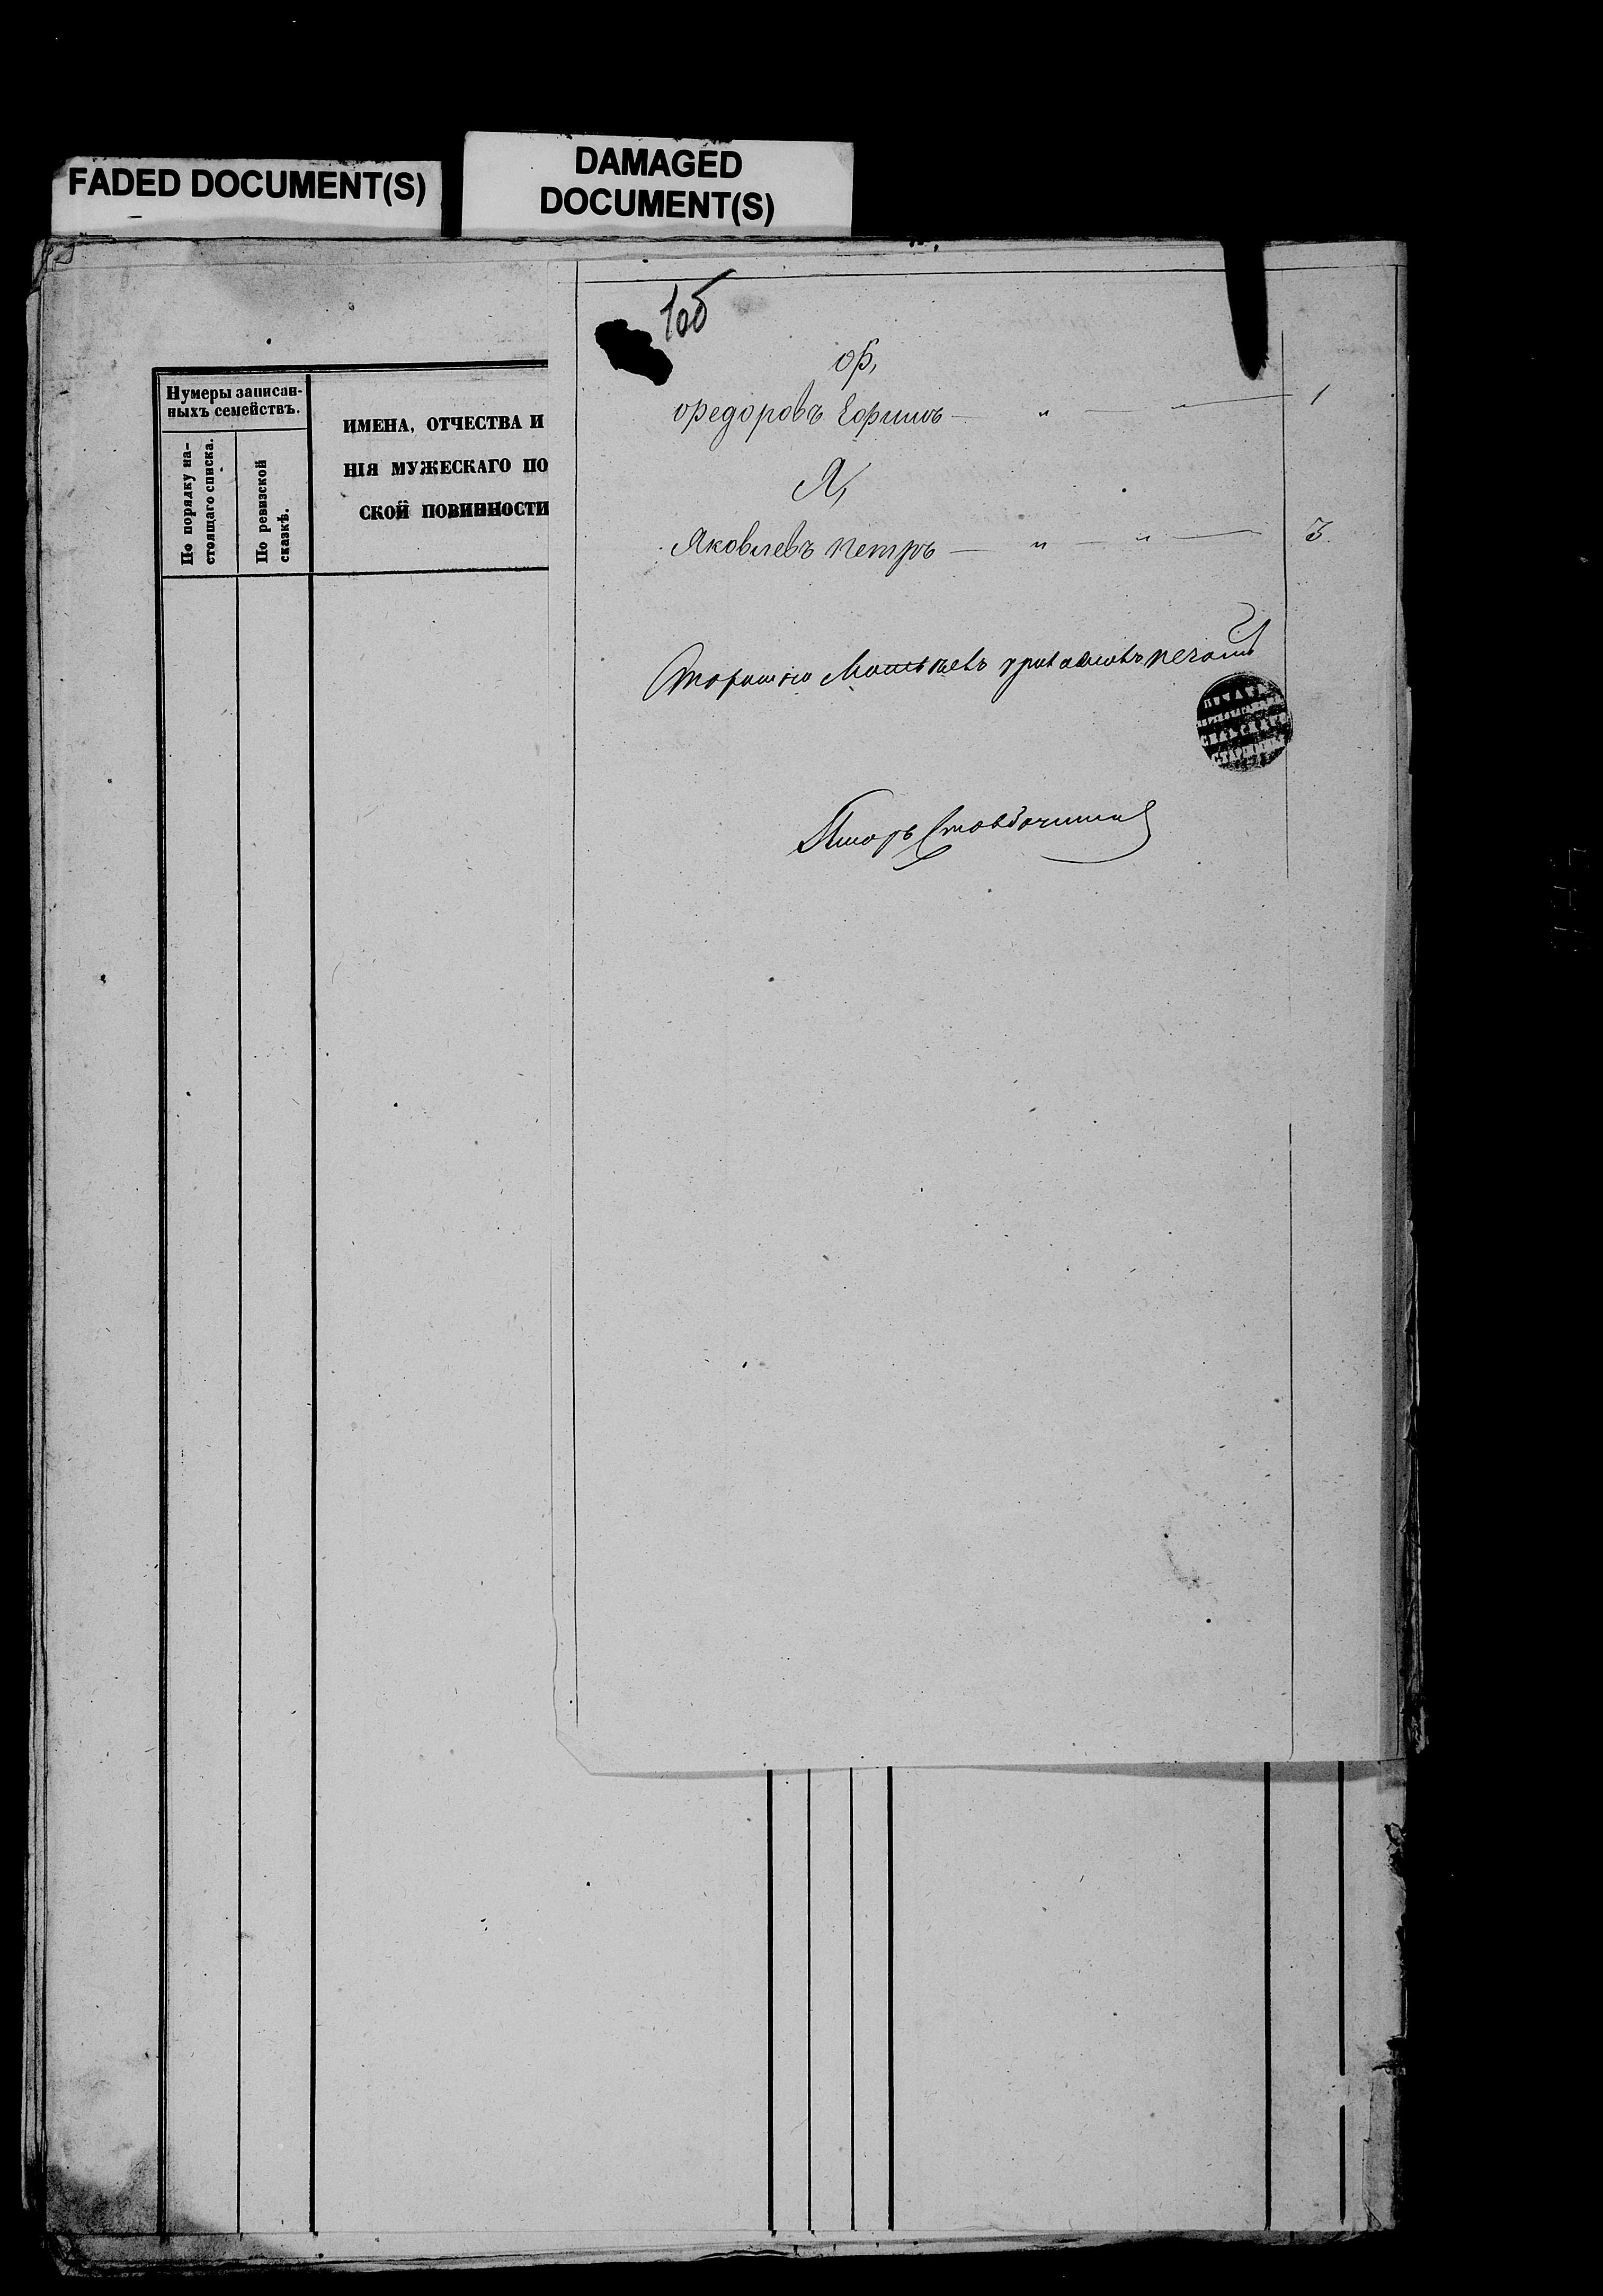 FADED DOCUMENT(S)
DAMAGED
DOCUMENT(S)
Нумеры записан-
ныхъ семействъ.
По порядку на-
стоящаго списка.
По ревизской
сказкѣ.
ИМЕНА, ОТЧЕСТВА И
НІЯ МУЖЕСКАГО ПО
СКОЙ ПОВИННОСТИ
Ф,
Федоровъ Ефимъ — „ — „ — 1
Я,
Яковлевъ Петръ — „ — „ — 3.
Старшина печать
ПЕЧАТЬ
СЕЛЬСКАГО
Писарь